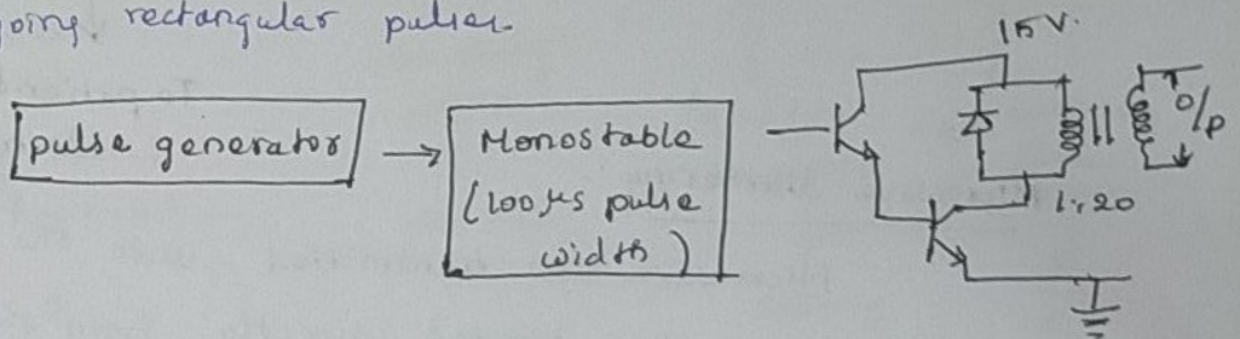 going rectangular pulses
pulse generator
Monostable
(100 μs pulse
width)
15 V.
O/p
1:20